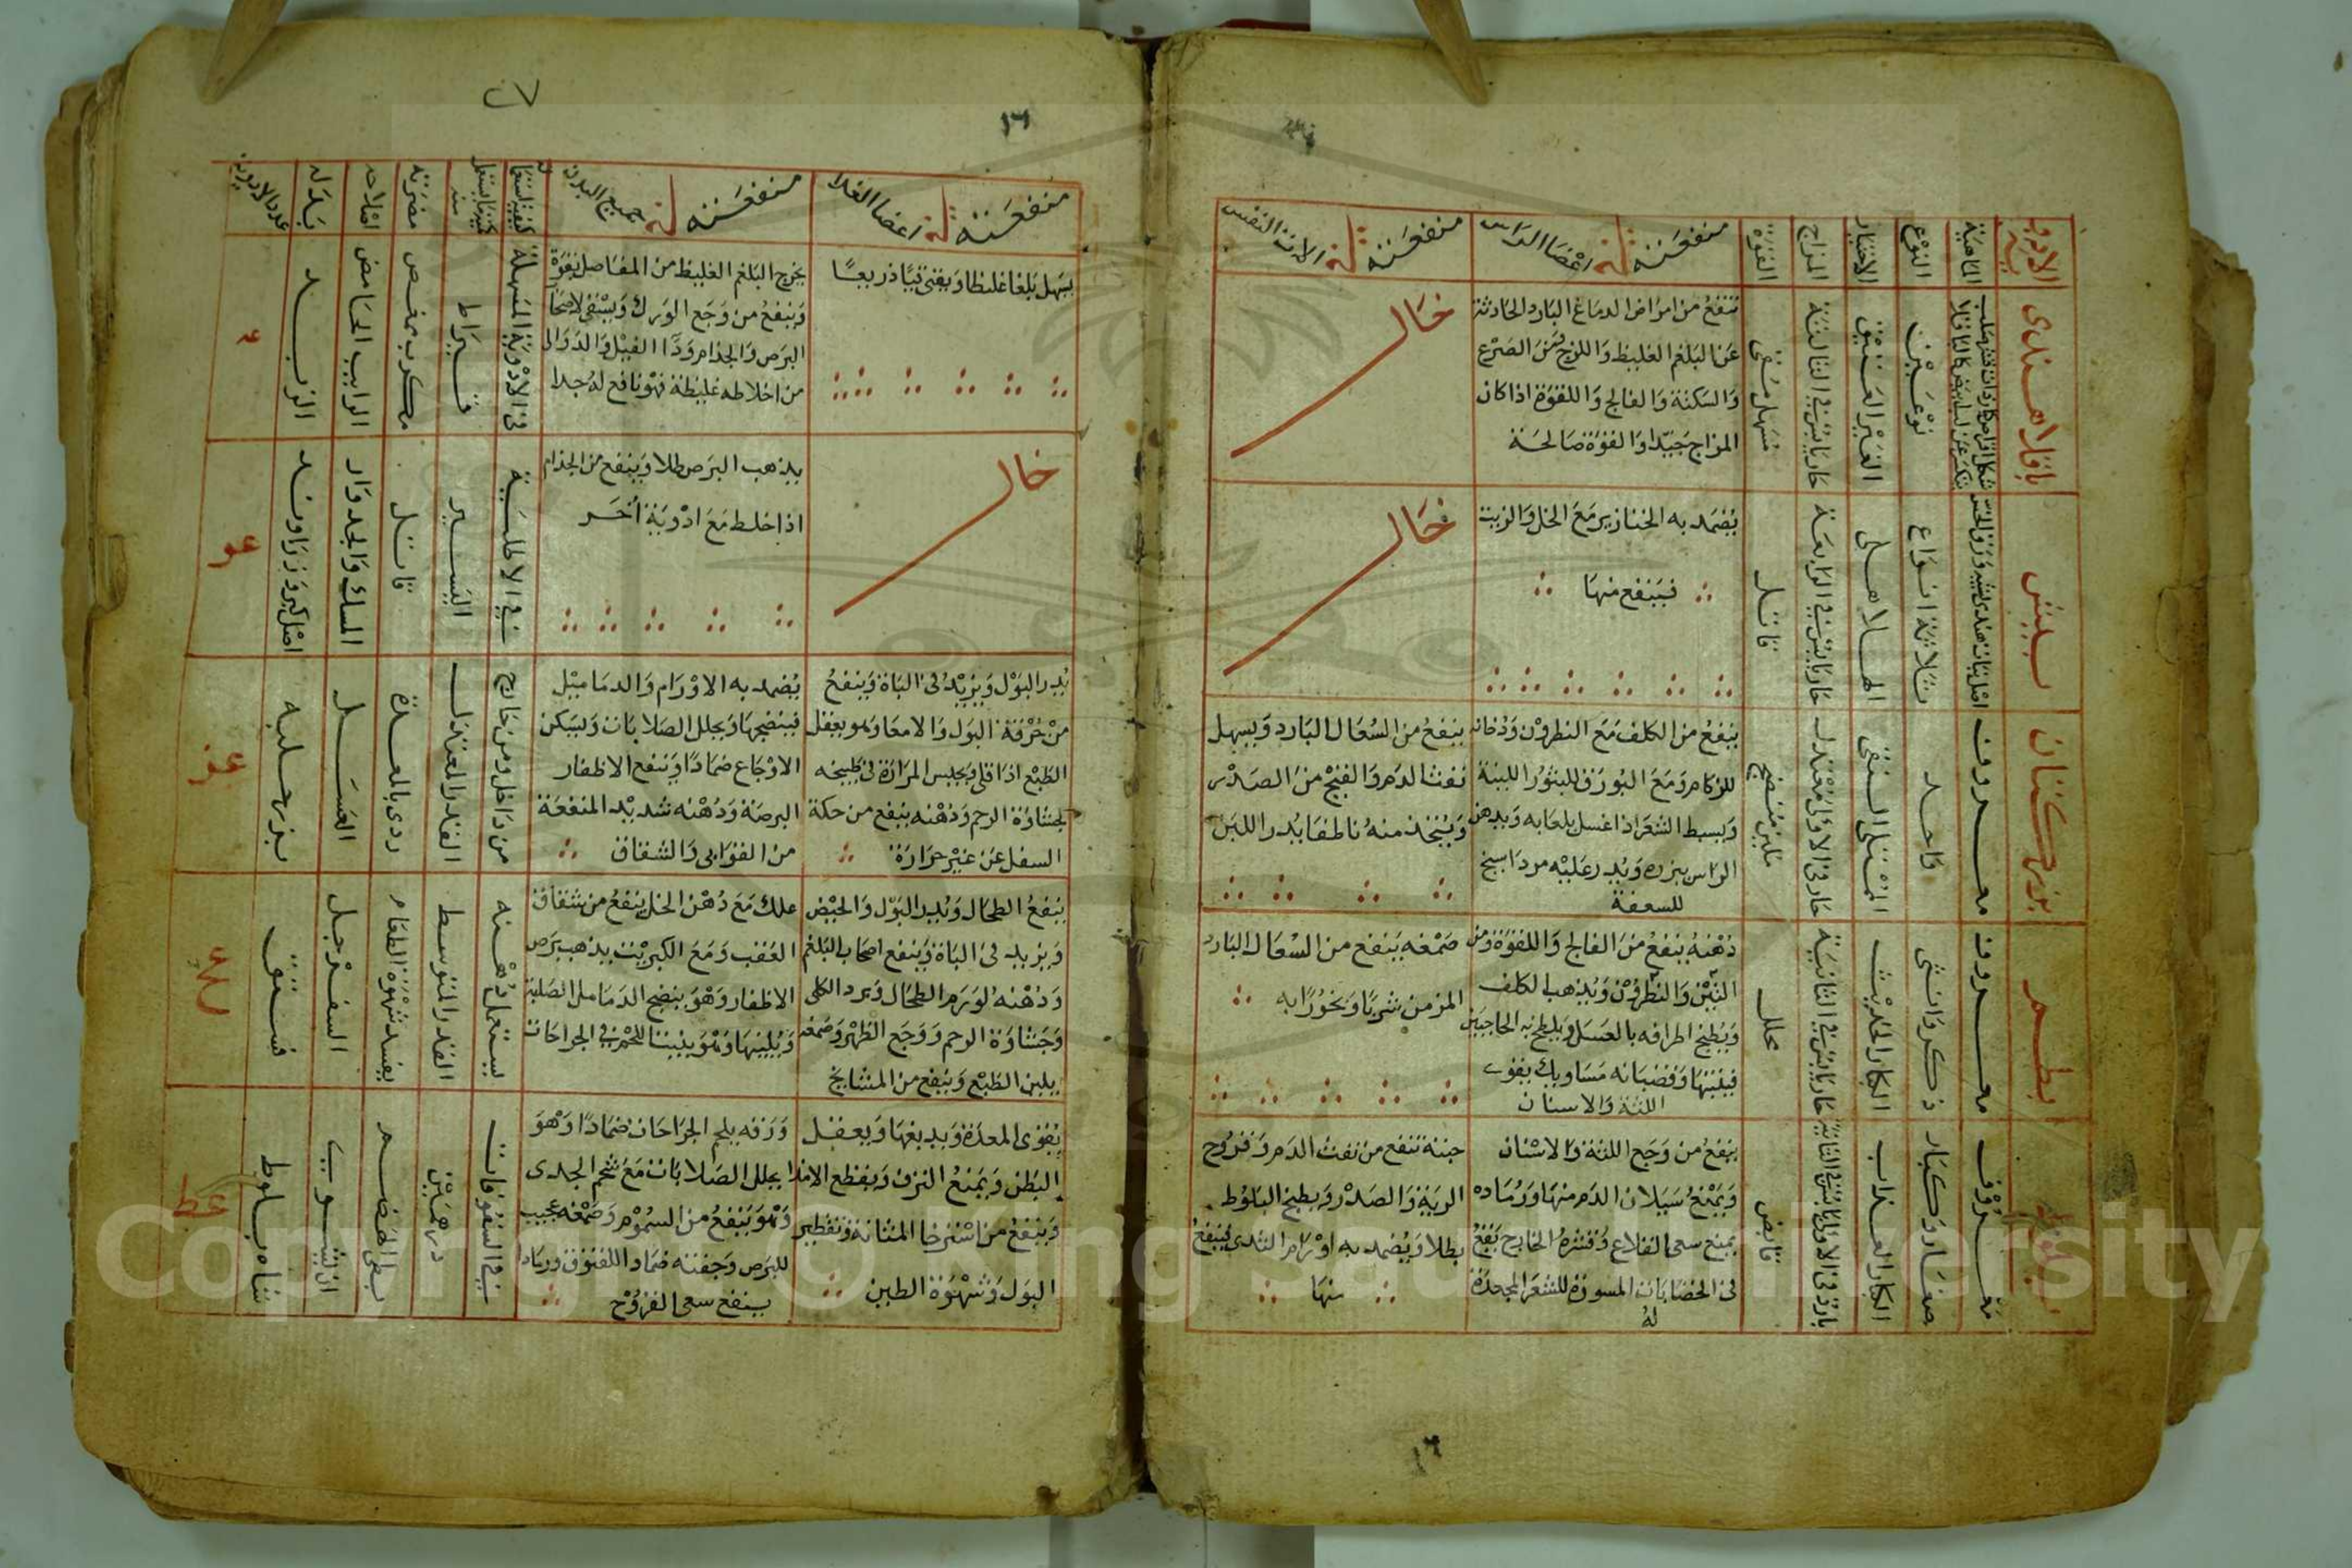 الادوية
الماهية
النوع
الاختيار
المزاج
القوة
منفعته في اعضا الراس
منفعته في الات النفس
باقلا هندى
نوعين
الغير العتيق
حار يابس في الثالثة
مسهل مقى
تنفع من امراض الدماغ البارد الحادثة
عن البلغم الغليظ واللزج فمن الصرع
والسكتة والفالج واللقوة اذا كان
المزاج جيدا والقوة صالحة
خال
بيش
ثلاثة انواع
الهلاهلى
حار يابس في الرابعة
قاتل
يضمد به الخنازير مع الخل والزيت
فينفع منها
خال
بزر كتان
معروف
واحد
الممتلى النقى
حار في الاولى معتدل
ملين منضج
ينفع من الكلف مع النطرون ودخانه
للزكام ومع البورق للبثور اللبنية
ويبسط الشعر اذا غسل بلعابه ويدهن
الراس ببزره ويذر عليه مرداسنج
للسعفة
ينفع من السعال البارد ويسهل
نفث الدم والقيح من الصدر
ويتخذ منه ناطفا يدر اللبن
بطم
معروف
ذكر وانثى
الكبار الحديث
حار يابس في الثانية
محلل
دهنه ينفع من الفالج واللقوة ومن
التين والنطرون ويذهب الكلف
ويطبخ اطرافه بالعسل ويلطخ به الحاجبين
فينبتها وقضبانه مساويك يقوى
اللثة والاسنان
صمغه ينفع من السعال البارد
المزمن شربا وبخورا به
معروف
صغار وكبار
الكبار العذاب
قابض
ينفع من وجع اللثة والاسنان
ويمنع سيلان الدم منها ورماده
يمنع سعى القلاع وقشره الخارج يقع
فى الخضابات المسودة للشعر المجعدة
له
جبنة تنفع من نفث الدم وقروح
الرية والصدر ويطبخ البلوط
بطلا ويضمد به اورام الثدى فينفع
منها
١٦
منفعته في اعضا الغذا
منفعته في جميع البدن
مضرته
اصلاحه
بدله
عدد الادوية
يسهل بلغما غليظا ويقى قيا ذريعا
يخرج البلغم الغليظ من المفاصل بقوة
وينفع من وجع الورك ويسقى لاصحاب
البرص والجذام ودا الفيل والدوالى
من اخلاطه غليظة فهو نافع له جدا
في الادوية المسهلة
قيراط
مكرب ممغص
الرايب الحامض
الزبد
خال
يذهب البرص طلا وينفع من الجذام
اذا خلط مع ادوية أخر
في الاطلية
اليسير
قاتل
المسك والجدوار
اصل كبر وزراوند
يدر البول ويزيد في الباة وينفع
من حرقة البول والامعا وهو يعقل
الطبع اذا قلى ويجلس المراة في طبيخه
لجشاوة الرحم ودهنه ينفع من حكة
السفل عن غير حرارة
يضمد به الاورام والدماميل
فينضجها ويحلل الصلابات ويسكن
الاوجاع ضمادا وينفع الاظفار
البرصة ودهنه شديد المنفعة
من القوابى والشقاق
من داخل ومن خارج
القدر المعتدل
ردى بالمعدة
العسل
بزر حلبه
ينفع الطحال ويدر البول والحيض
ويزيد في الباة وينفع اصحاب البلغم
ودهنه لورم الطحال وبرد الكلى
وجشاوة الرحم ووجع الظهر وصمغه
يلين الطبع وينفع من المشايخ
علك مع دهن الخل ينفع من شقاق
العقب ومع الكبريت يذهب برص
الاظفار وهو ينضج الدماميل الصلبة
ويلينها وهو ينبت اللحم في الجراحات
يستعمل دهنه
القدر المتوسط
يفسد شهوة الطعام
السفرجل
فستق
يقوى المعدة ويدبغها ويعقل
البطن ويمنع النزف ويقطع الامذا
وينفع من استرخا المثانة وتقطير
البول وشهوة الطين
ورقه يلحم الجراحات ضمادا وهو
يحلل الصلابات مع شحم الجدى
وهو ينفع من السموم وصمغه عجيب
للبرص وجفته ضماد اللفتوق ورماد
ينفع سعى القروح
في السفوفات
درهمين
بطى الهضم
ان يشوى
شاه بلوط
Copyright © King Saud University